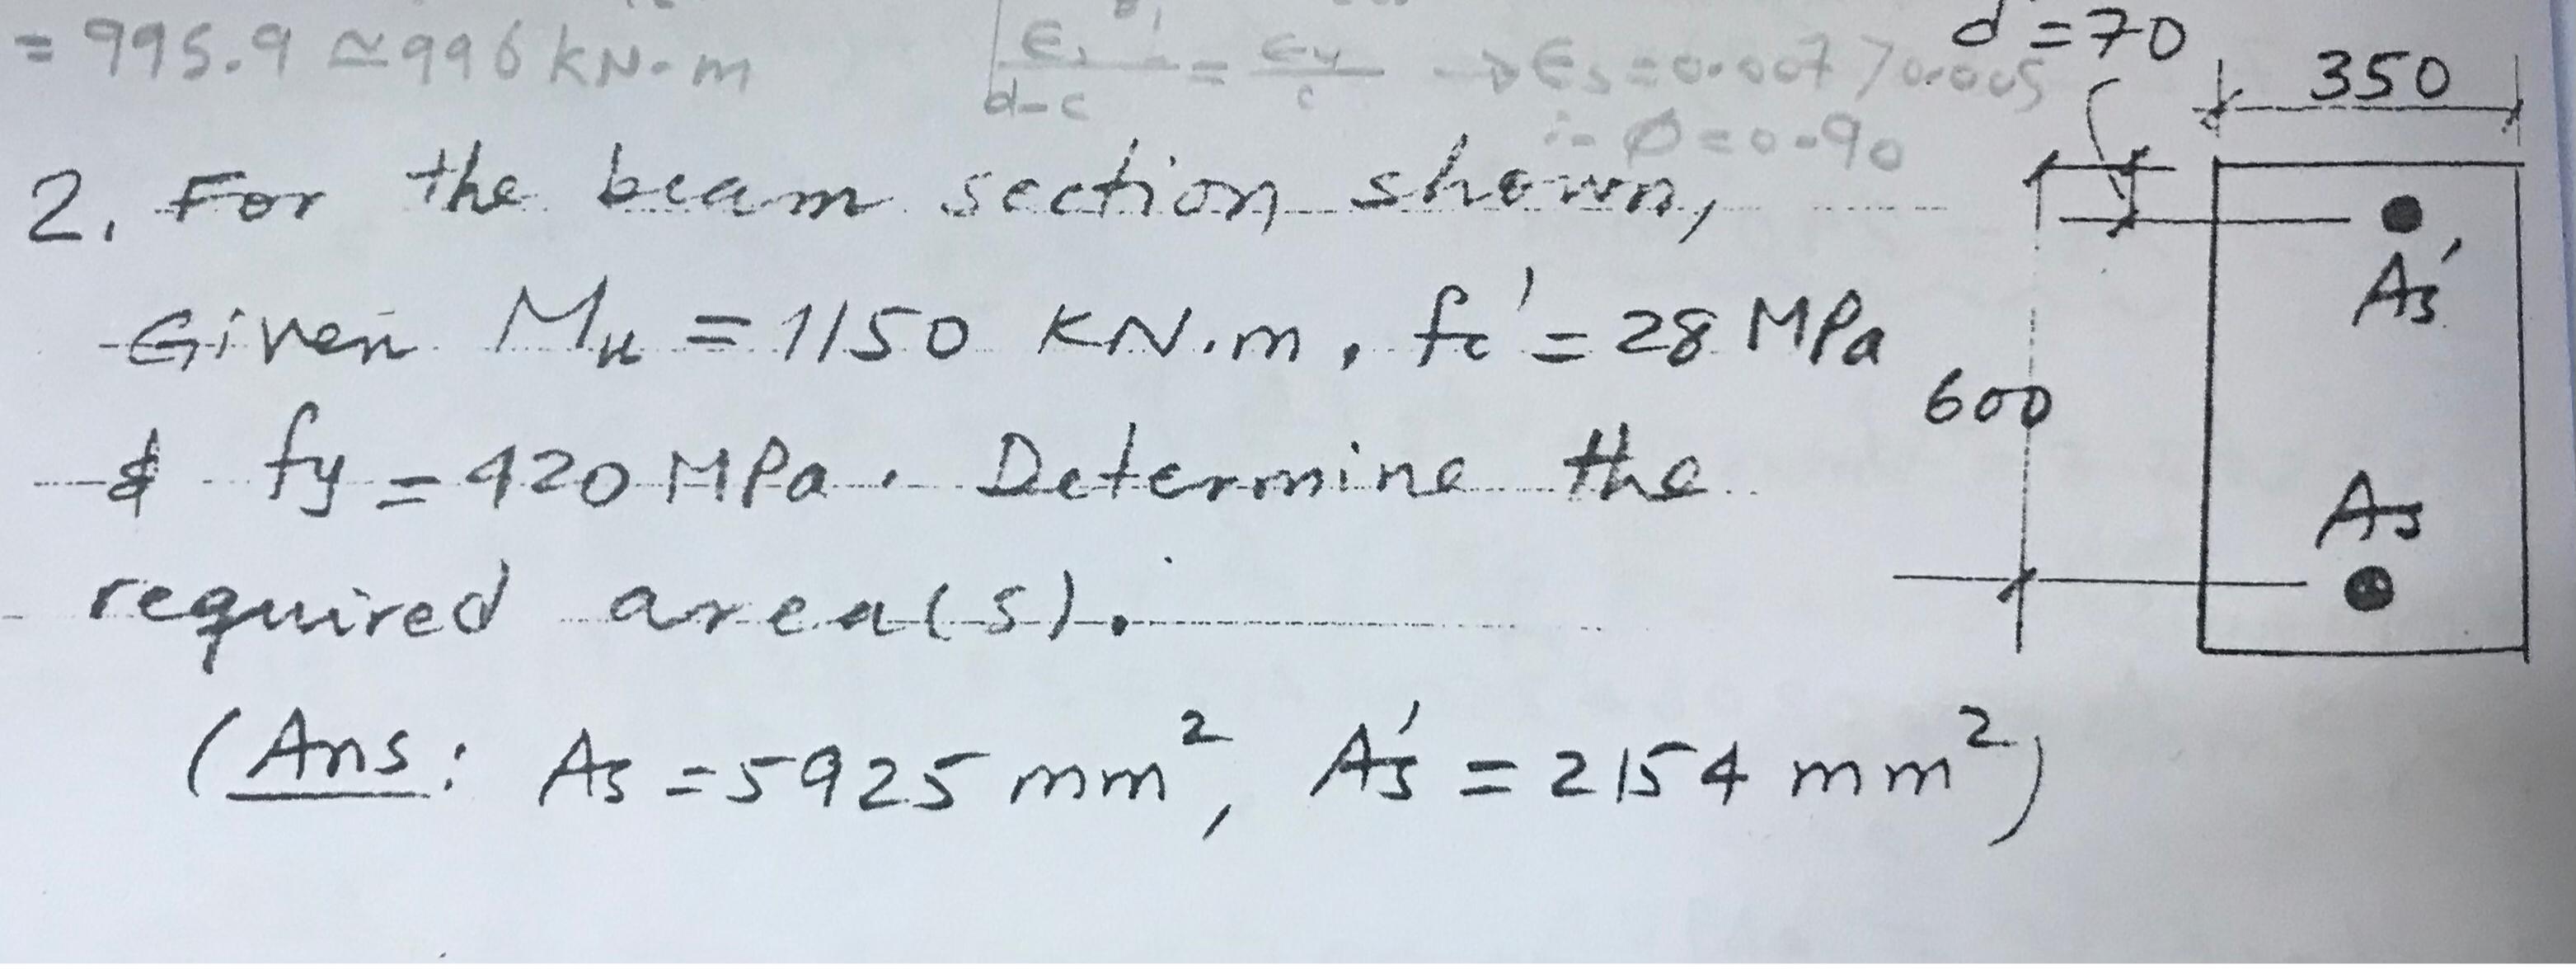 = 995.9 ≃ 996 kN.m
εs/d-c = εu/c → εs = 0.007 > 0.005
∴ Ø = 0.90
d' = 70
350
2. For the beam section shown,
Given Mu = 1150 KN.m, fc' = 28 MPa
& fy = 420 MPa. Determine the
required area(s).
(Ans: As = 5925 mm², As' = 2154 mm²)
As'
600
As